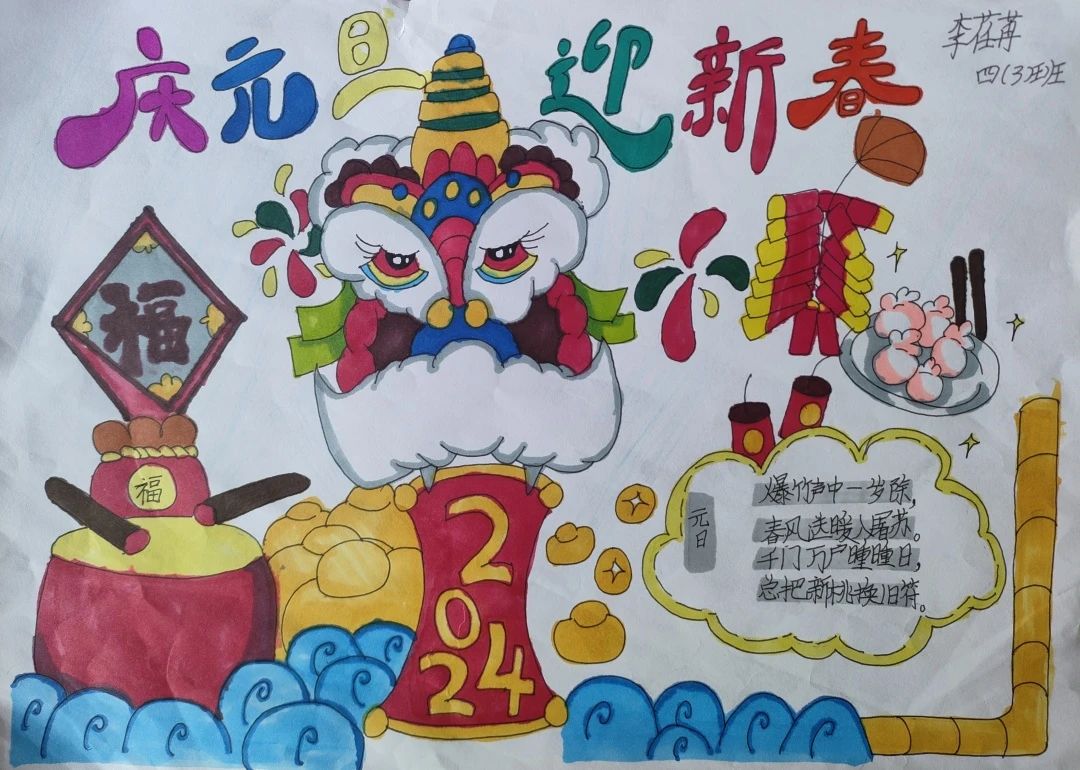 庆元旦 迎新春
李荏苒
四(3)班
福
福
元日
爆竹声中一岁除,
春风送暖入屠苏。
千门万户瞳瞳日,
总把新桃换旧符。
2024